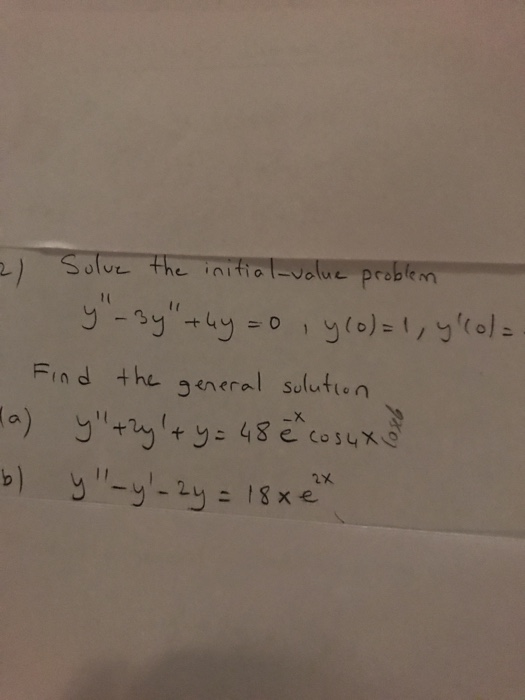 2) Solve the initial-value problem
y" - 3y" + 4y = 0 , y(0) = 1, y'(0) =
Find the general solution
(a) y" + 2y' + y = 48 e^-x cos4x
b) y" - y' - 2y = 18xe^2x